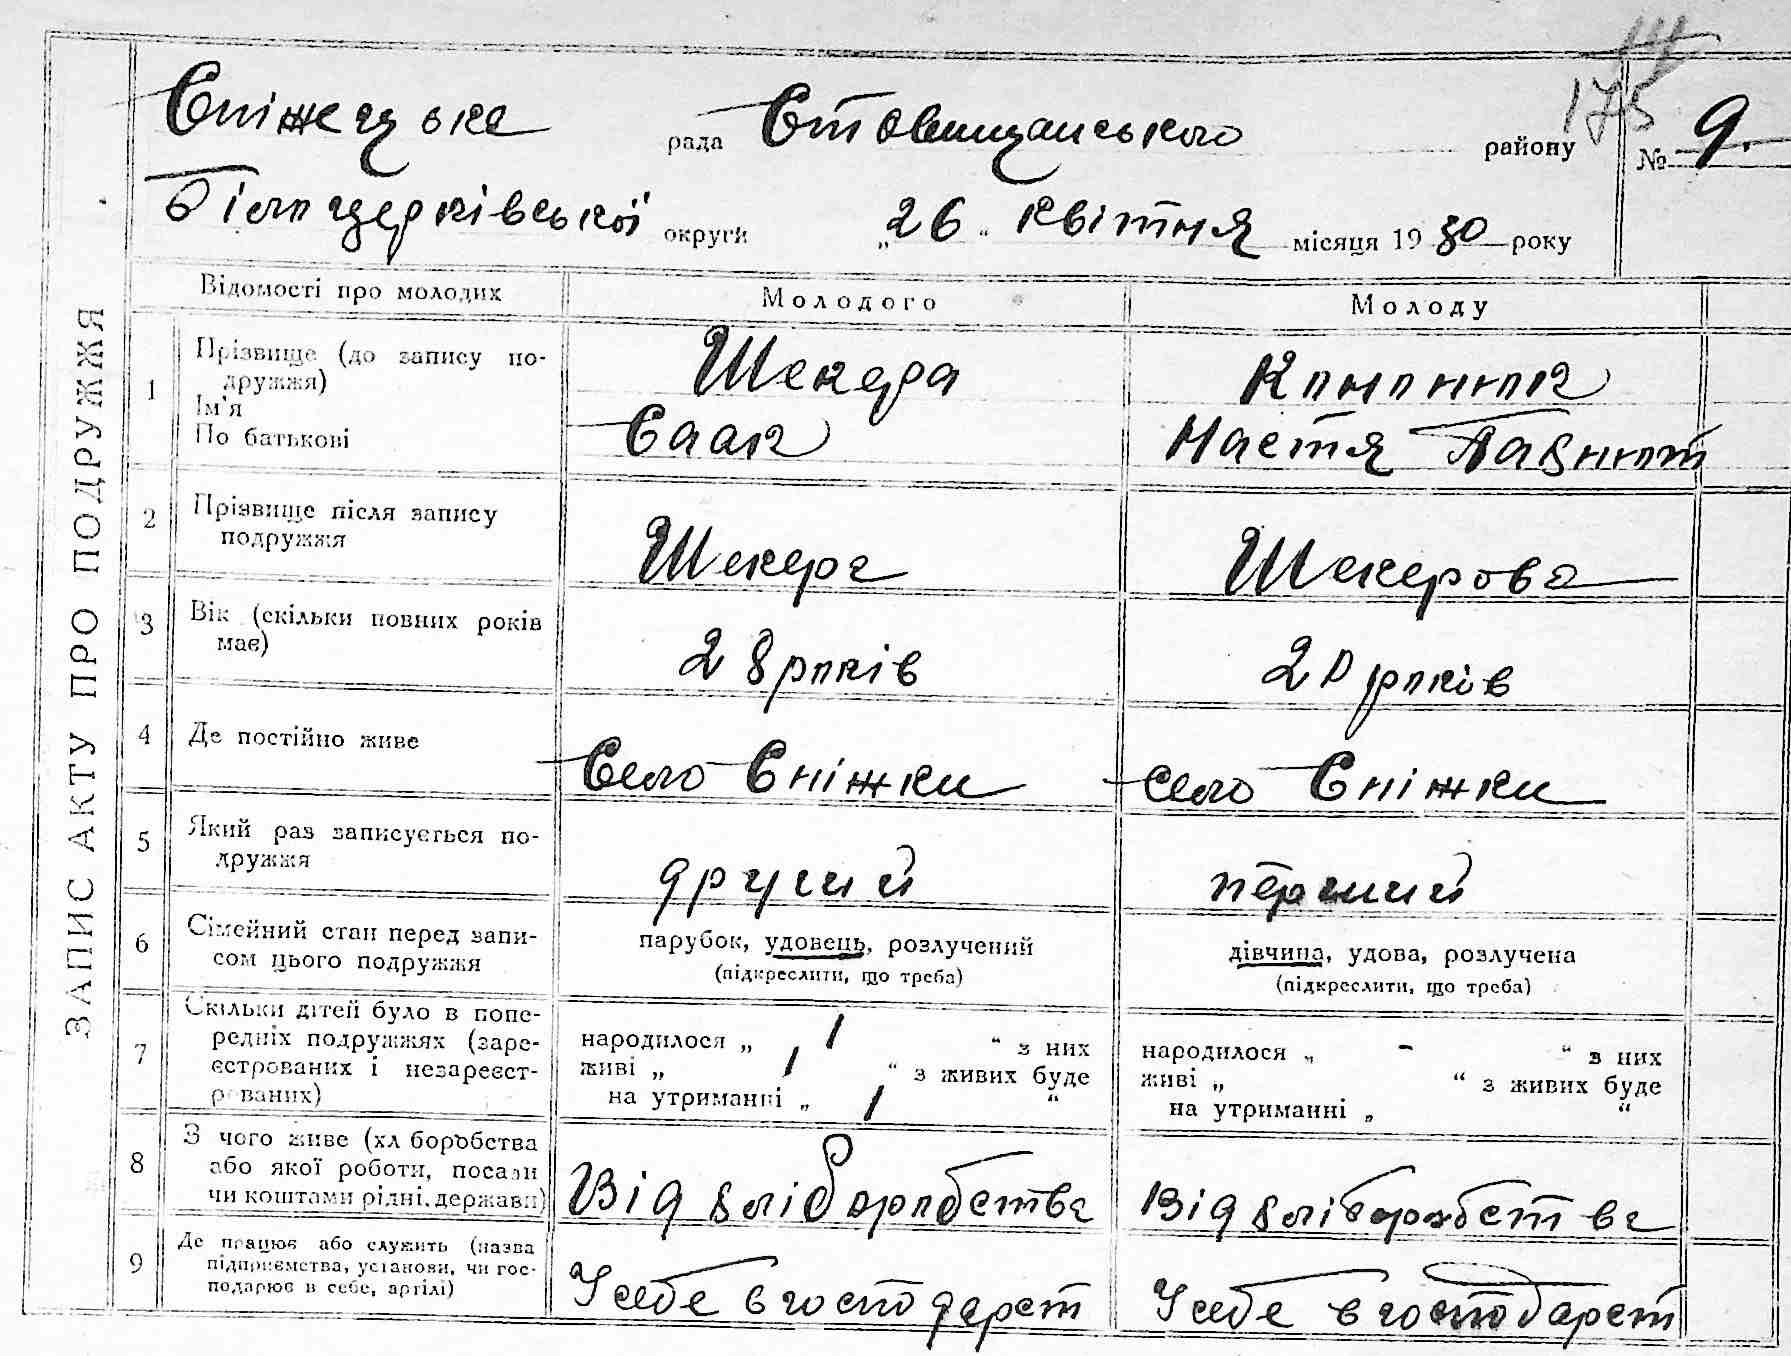 175
Сніжецька рада Ставищанського району № 9.
Білоцерківської округи „26“ Квітня місяця 1930 року
ЗАПИС АКТУ ПРО ПОДРУЖЖЯ
Відомості про молодих Молодого Молоду
1 Прізвище (до запису по-
дружжя) Шекера
Ім'я Саак Настя
По батькові
2 Прізвище після запису
подружжя Шекера Шекерова
3 Вік (скільки повних років
має) 28 років 20 років
4 Де постійно живе Село Сніжки село Сніжки
5 Який раз записується по-
дружжя другий перший
6 Сімейний стан перед запи-
сом цього подружжя
парубок, удовець, розлучений
(підкреслити, що треба)
дівчина, удова, розлучена
(підкреслити, що треба)
7 Скільки дітей було в попе-
редніх подружжях (заре-
єстрованих і незареєст-
рованих)
народилося „ 1 “ з них
живі „ 1 “ з живих буде
на утриманні „ 1 “
народилося „ - “ з них
живі „ “ з живих буде
на утриманні „ “
8 З чого живе (хліборобства
або якої роботи, посади
чи коштами рідні, держави)
Від хліборобства Від хліборобства
9 Де працює або служить (назва
підприємства, установи, чи гос-
подарює в себе, артілі)
У себе в господарст У себе в господарст